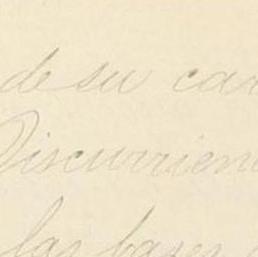 de su car
Discurrien
las bases